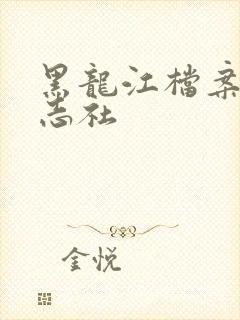 黑龍江檔案
志社
金悦